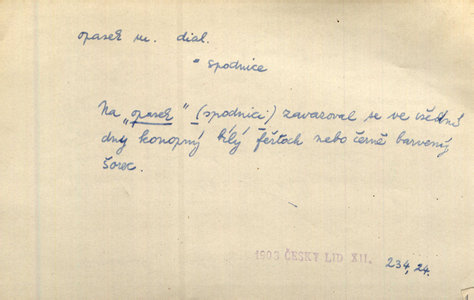 opasek m. dial.
* spodnice
Na „opasek" (spodnici) zavazoval se ve všední
dny konopný bílý fěrtoch nebo černě barvený
šorec.
1903 ČESKÝ LID XII. 234,24.